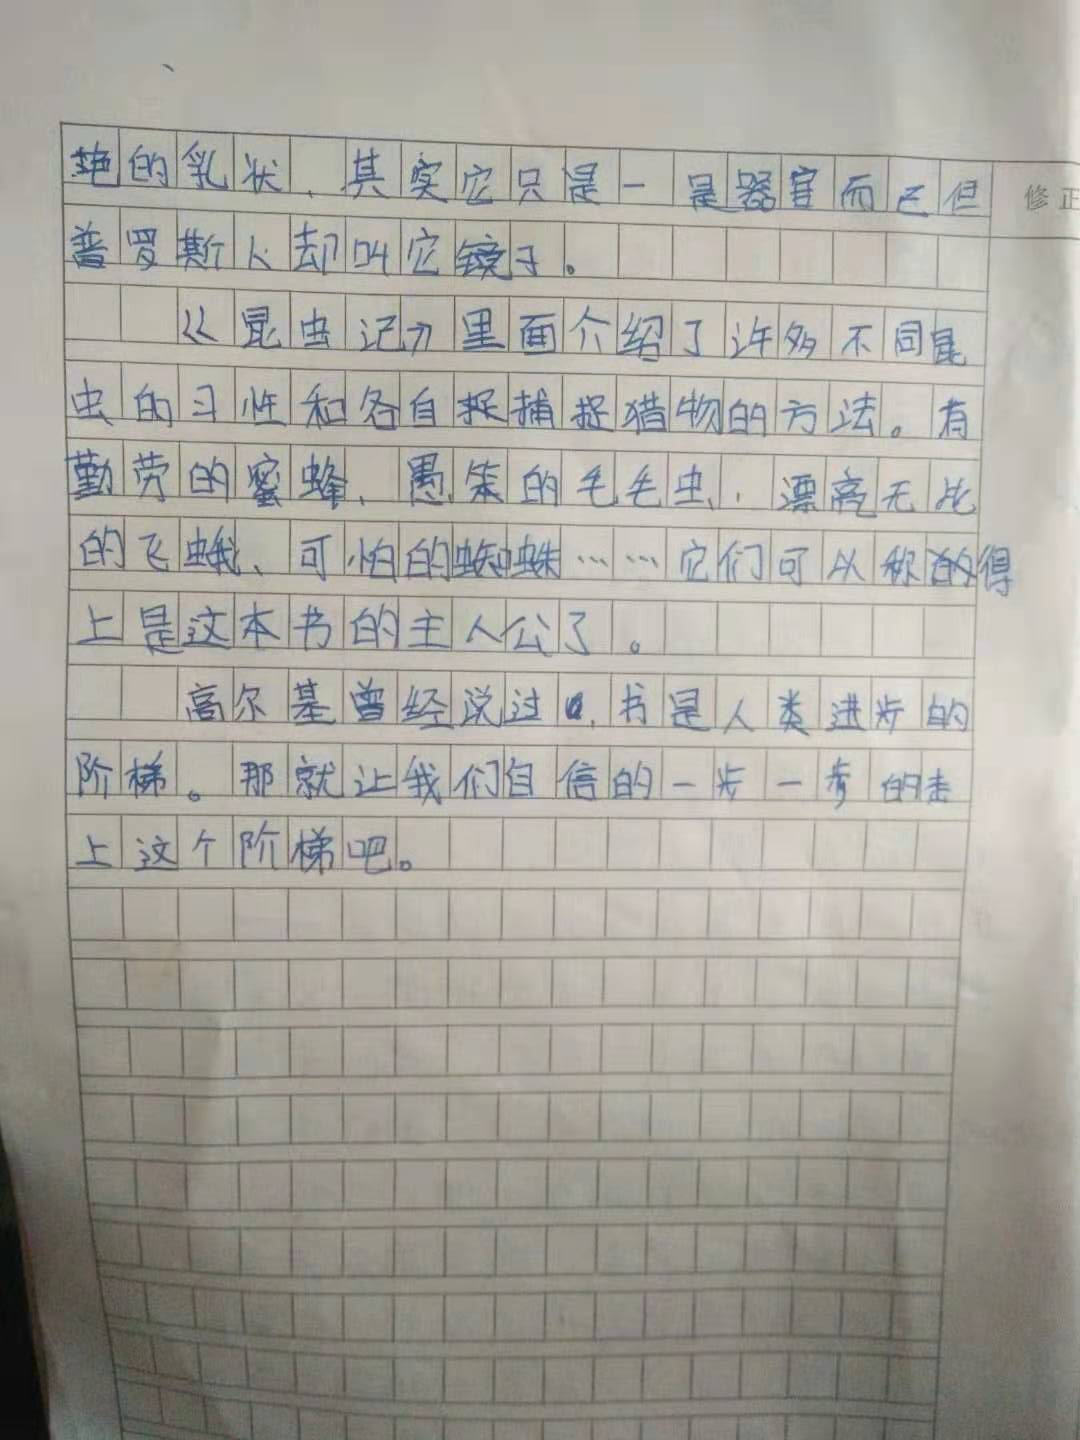 艳的乳状、其实它只是一是器官而已但
修正
普罗斯人却叫它镜子。
《昆虫记》里面介绍了许多不同昆
虫的习性和各自捉捕捉猎物的方法。有
勤劳的蜜蜂、愚笨的毛毛虫、漂亮无比
的飞蛾、可怕的蜘蛛……它们可以称得
上是这本书的主人公了。
高尔基曾经说过，书是人类进步的
阶梯。那就让我们自信的一步一步的走
上这个阶梯吧。